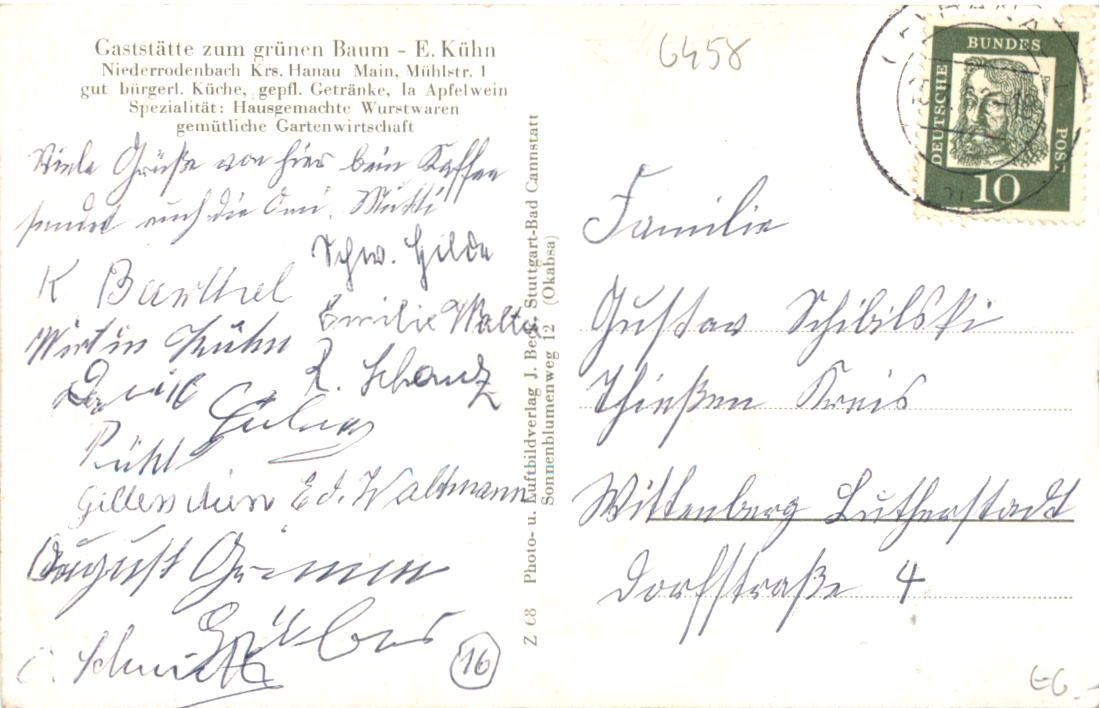 Gaststätte zum grünen Baum - E. Kühn
Niederrodenbach Krs. Hanau Main, Mühlstr. 1
gut bürgerl. Küche, gepfl. Getränke, la Apfelwein
Spezialität: Hausgemachte Wurstwaren
gemütliche Gartenwirtschaft
Viele Grüße von hier beim Kaffee
sendet euch die Omi. Mutti
Schw. Hilde
K Barthel
Emilie Walter
Wirtin Kühn
R. Schanz
Rühl
Ed. Waltmann
August Grimm
C. Schmidt
16
Z 68 Photo- u. Luftbildverlag J. Beck, Stuttgart-Bad Cannstatt
Sonnenblumenweg 12 (Okabsa)
6458
DEUTSCHE
BUNDES
POST
10
Familie
Gustav Schibilski
Thießen Kreis
Wittenberg Lutherstadt
Dorfstraße 4